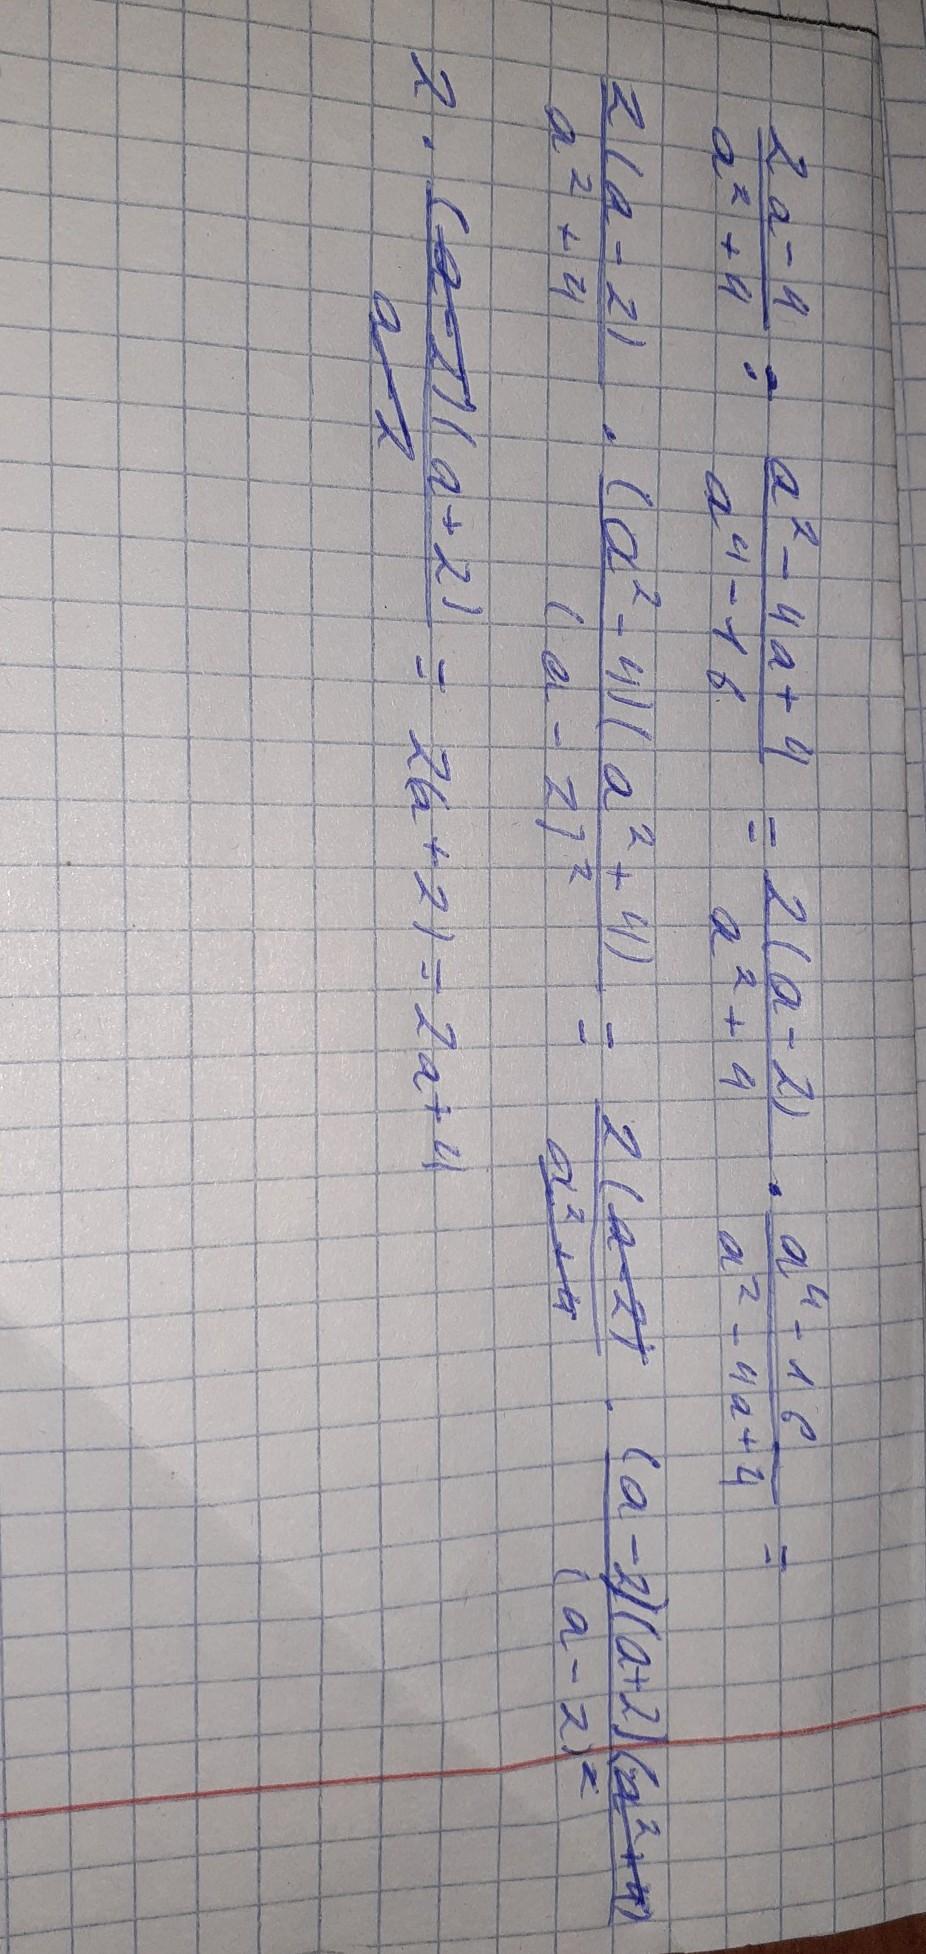 (2a-4)/(a²+4) : (a²-4a+4)/(a⁴-16) = 2(a-2)/(a²+4) · (a⁴-16)/(a²-4a+4) =
2(a-2)/(a²+4) · (a²-4)(a²+4)/(a-2)² = 2(a-2)/(a²+4) · (a-2)(a+2)(a²+4)/(a-2)²
2 · (a-2)(a+2)/(a-2) = 2(a+2) = 2a+4